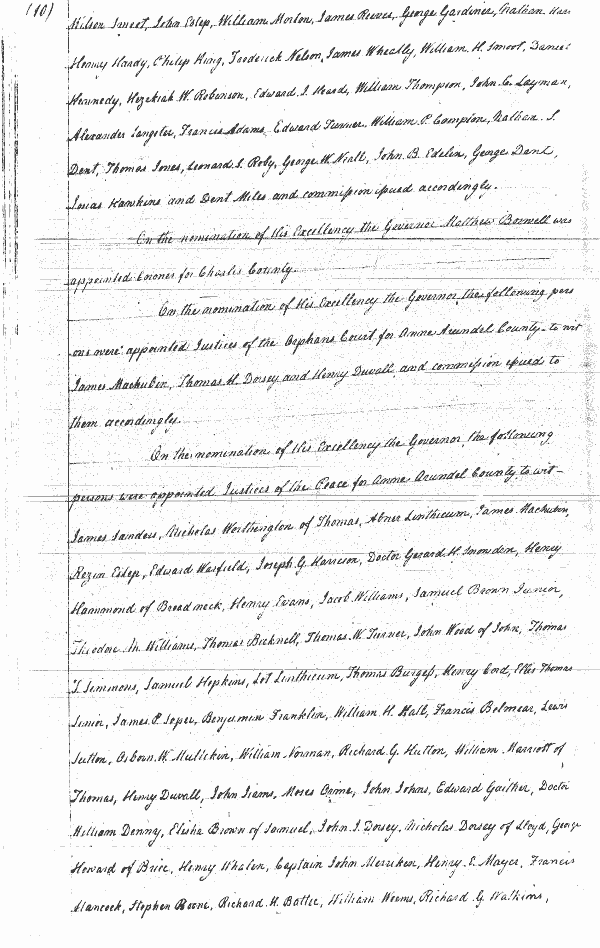 (10)
Wilson Smoot, John Estep, William Morton, James Reeves, George Gardiner, Nathan
Henry Hardy, Philip King, Frederick Nelson, James Wheatly, William H. Smoot, Daniel
Kennedy, Hezekiah W. Robinson, Edward J. Heard, William Thompson, John C. Layman,
Alexander Langley, Francis Adams, Edward Turner, William P. Compton, Nathan S.
Dent, Thomas Jones, Leonard S. Roby, George W. Neall, John B. Edelen, George Dent,
Josias Hawkins and Dent Miles and commission issued accordingly.
On the nomination of His Excellency the Governor Matthew Bonnell was
appointed Coroner for Charles County.
On the nomination of His Excellency the Governor the following pers
ons were appointed Justices of the Orphans Court for Anne Arundel County to wit
James Mackubin, Thomas H. Dorsey and Henry Duvall, and commission issued to
them accordingly.
On the nomination of His Excellency the Governor, the following
persons were appointed Justices of the Peace for Anne Arundel County, to wit-
James Sanders, Nicholas Worthington of Thomas, Abner Linthicum, James Mackubin,
Rezin Estep, Edward Warfield, Joseph G. Harrison, Doctor Gerard H. Snowden, Henry
Hammond of Broad neck, Henry Evans, Jacob Williams, Samuel Brown Junior,
Theodore M. Williams, Thomas Bicknell, Thomas W. Turner, John Wood of John, Thomas
T. Simmons, Samuel Hopkins, Lot Linthicum, Thomas Burgess, Henry Cord, Ellis Thomas
Senior, James P. Soper, Benjamin Franklin, William H. Hall, Francis Belmear, Lewis
Sutton, Osborn W. Mullikin, William Norman, Richard G. Hutton, William Marriott of
Thomas, Henry Duvall, John Iiams, Moses Orme, John Johns, Edward Gaither, Doctor
William Denny, Elisha Brown of Samuel, John J. Dorsey, Nicholas Dorsey of Lloyd, George
Howard of Brice, Henry Whalen, Captain John Merriken, Henry E. Mayer, Francis
Hancock, Stephen Boone, Richard H. Battee, William Weems, Richard G. Watkins,